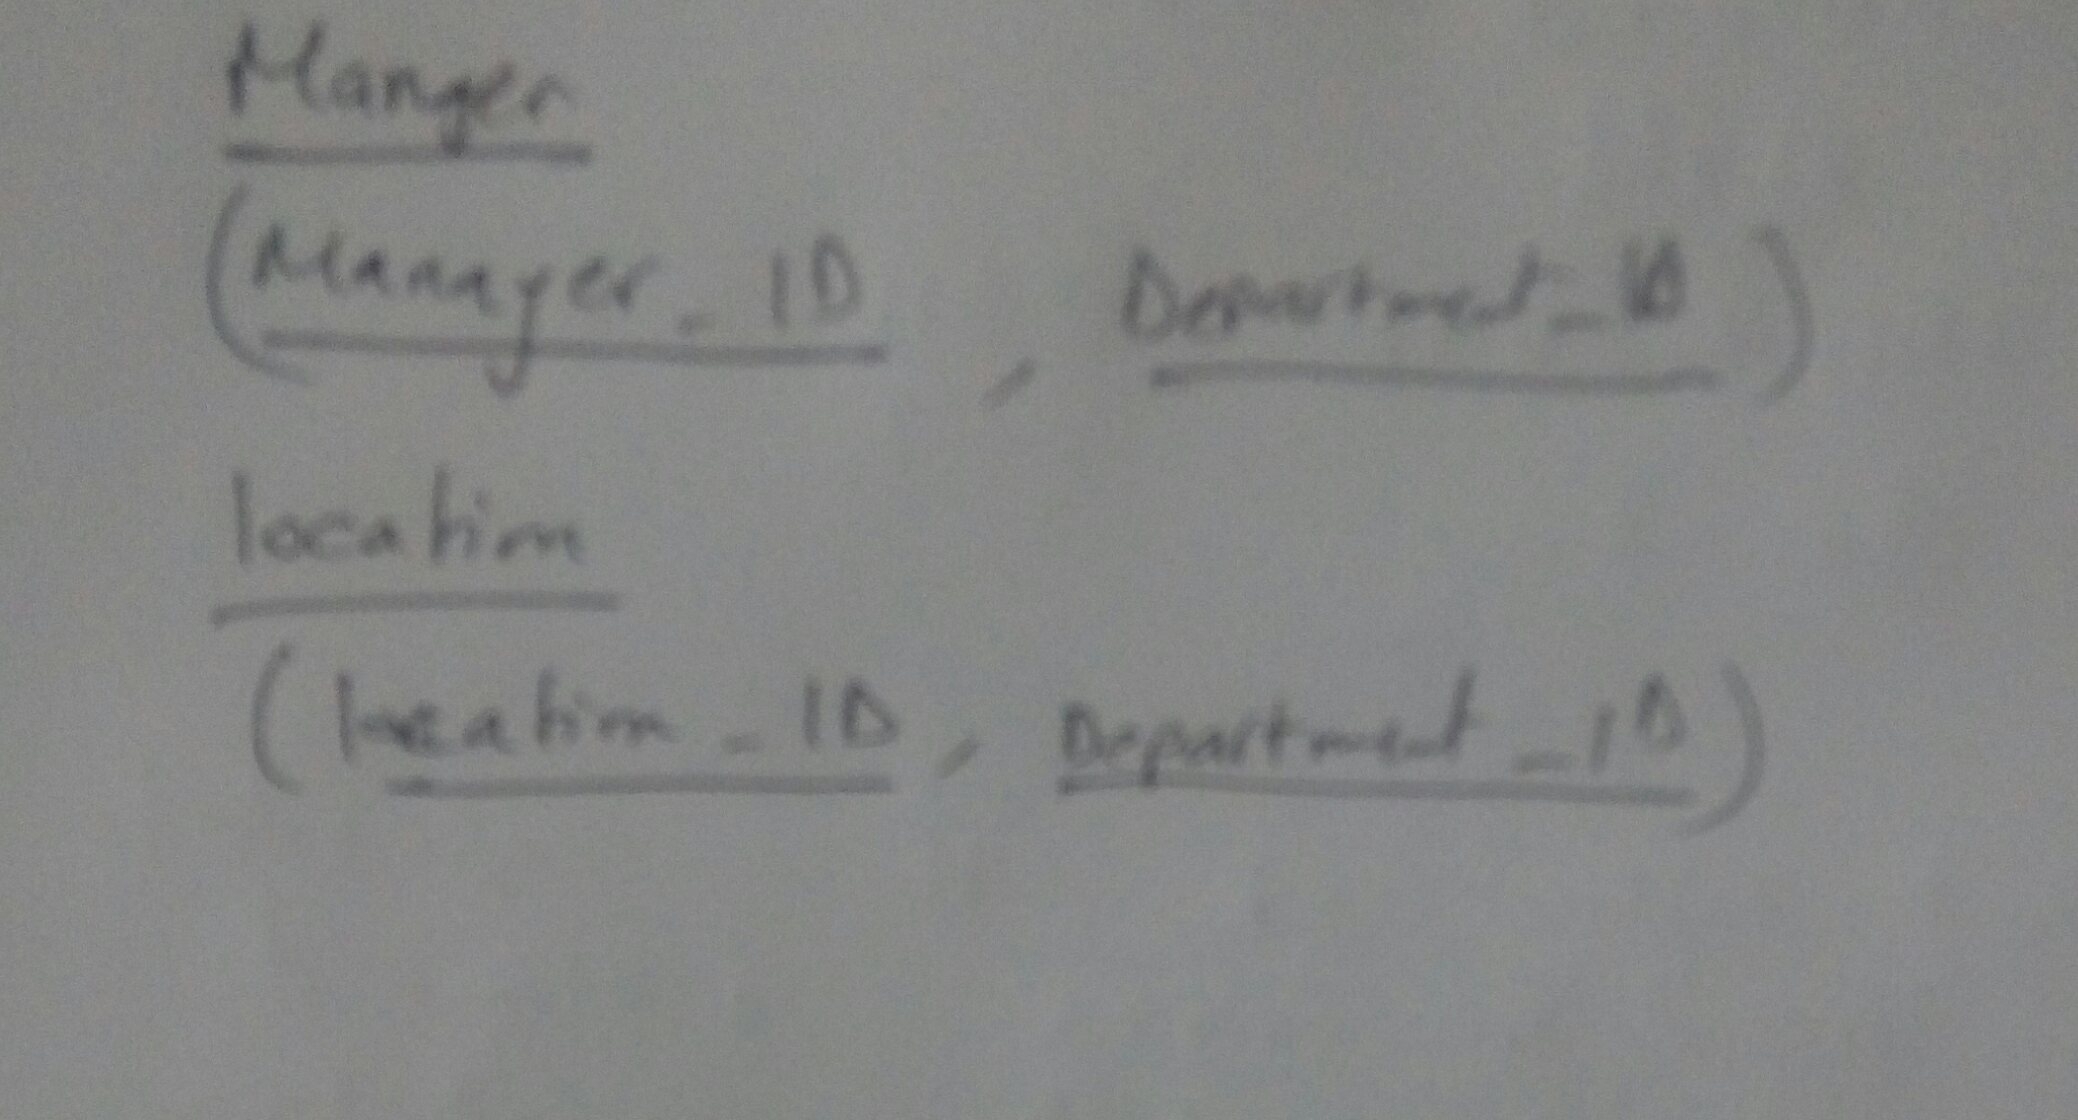 Manger
(Manager_ID , Department_ID)
location
(location_ID , Department_ID)